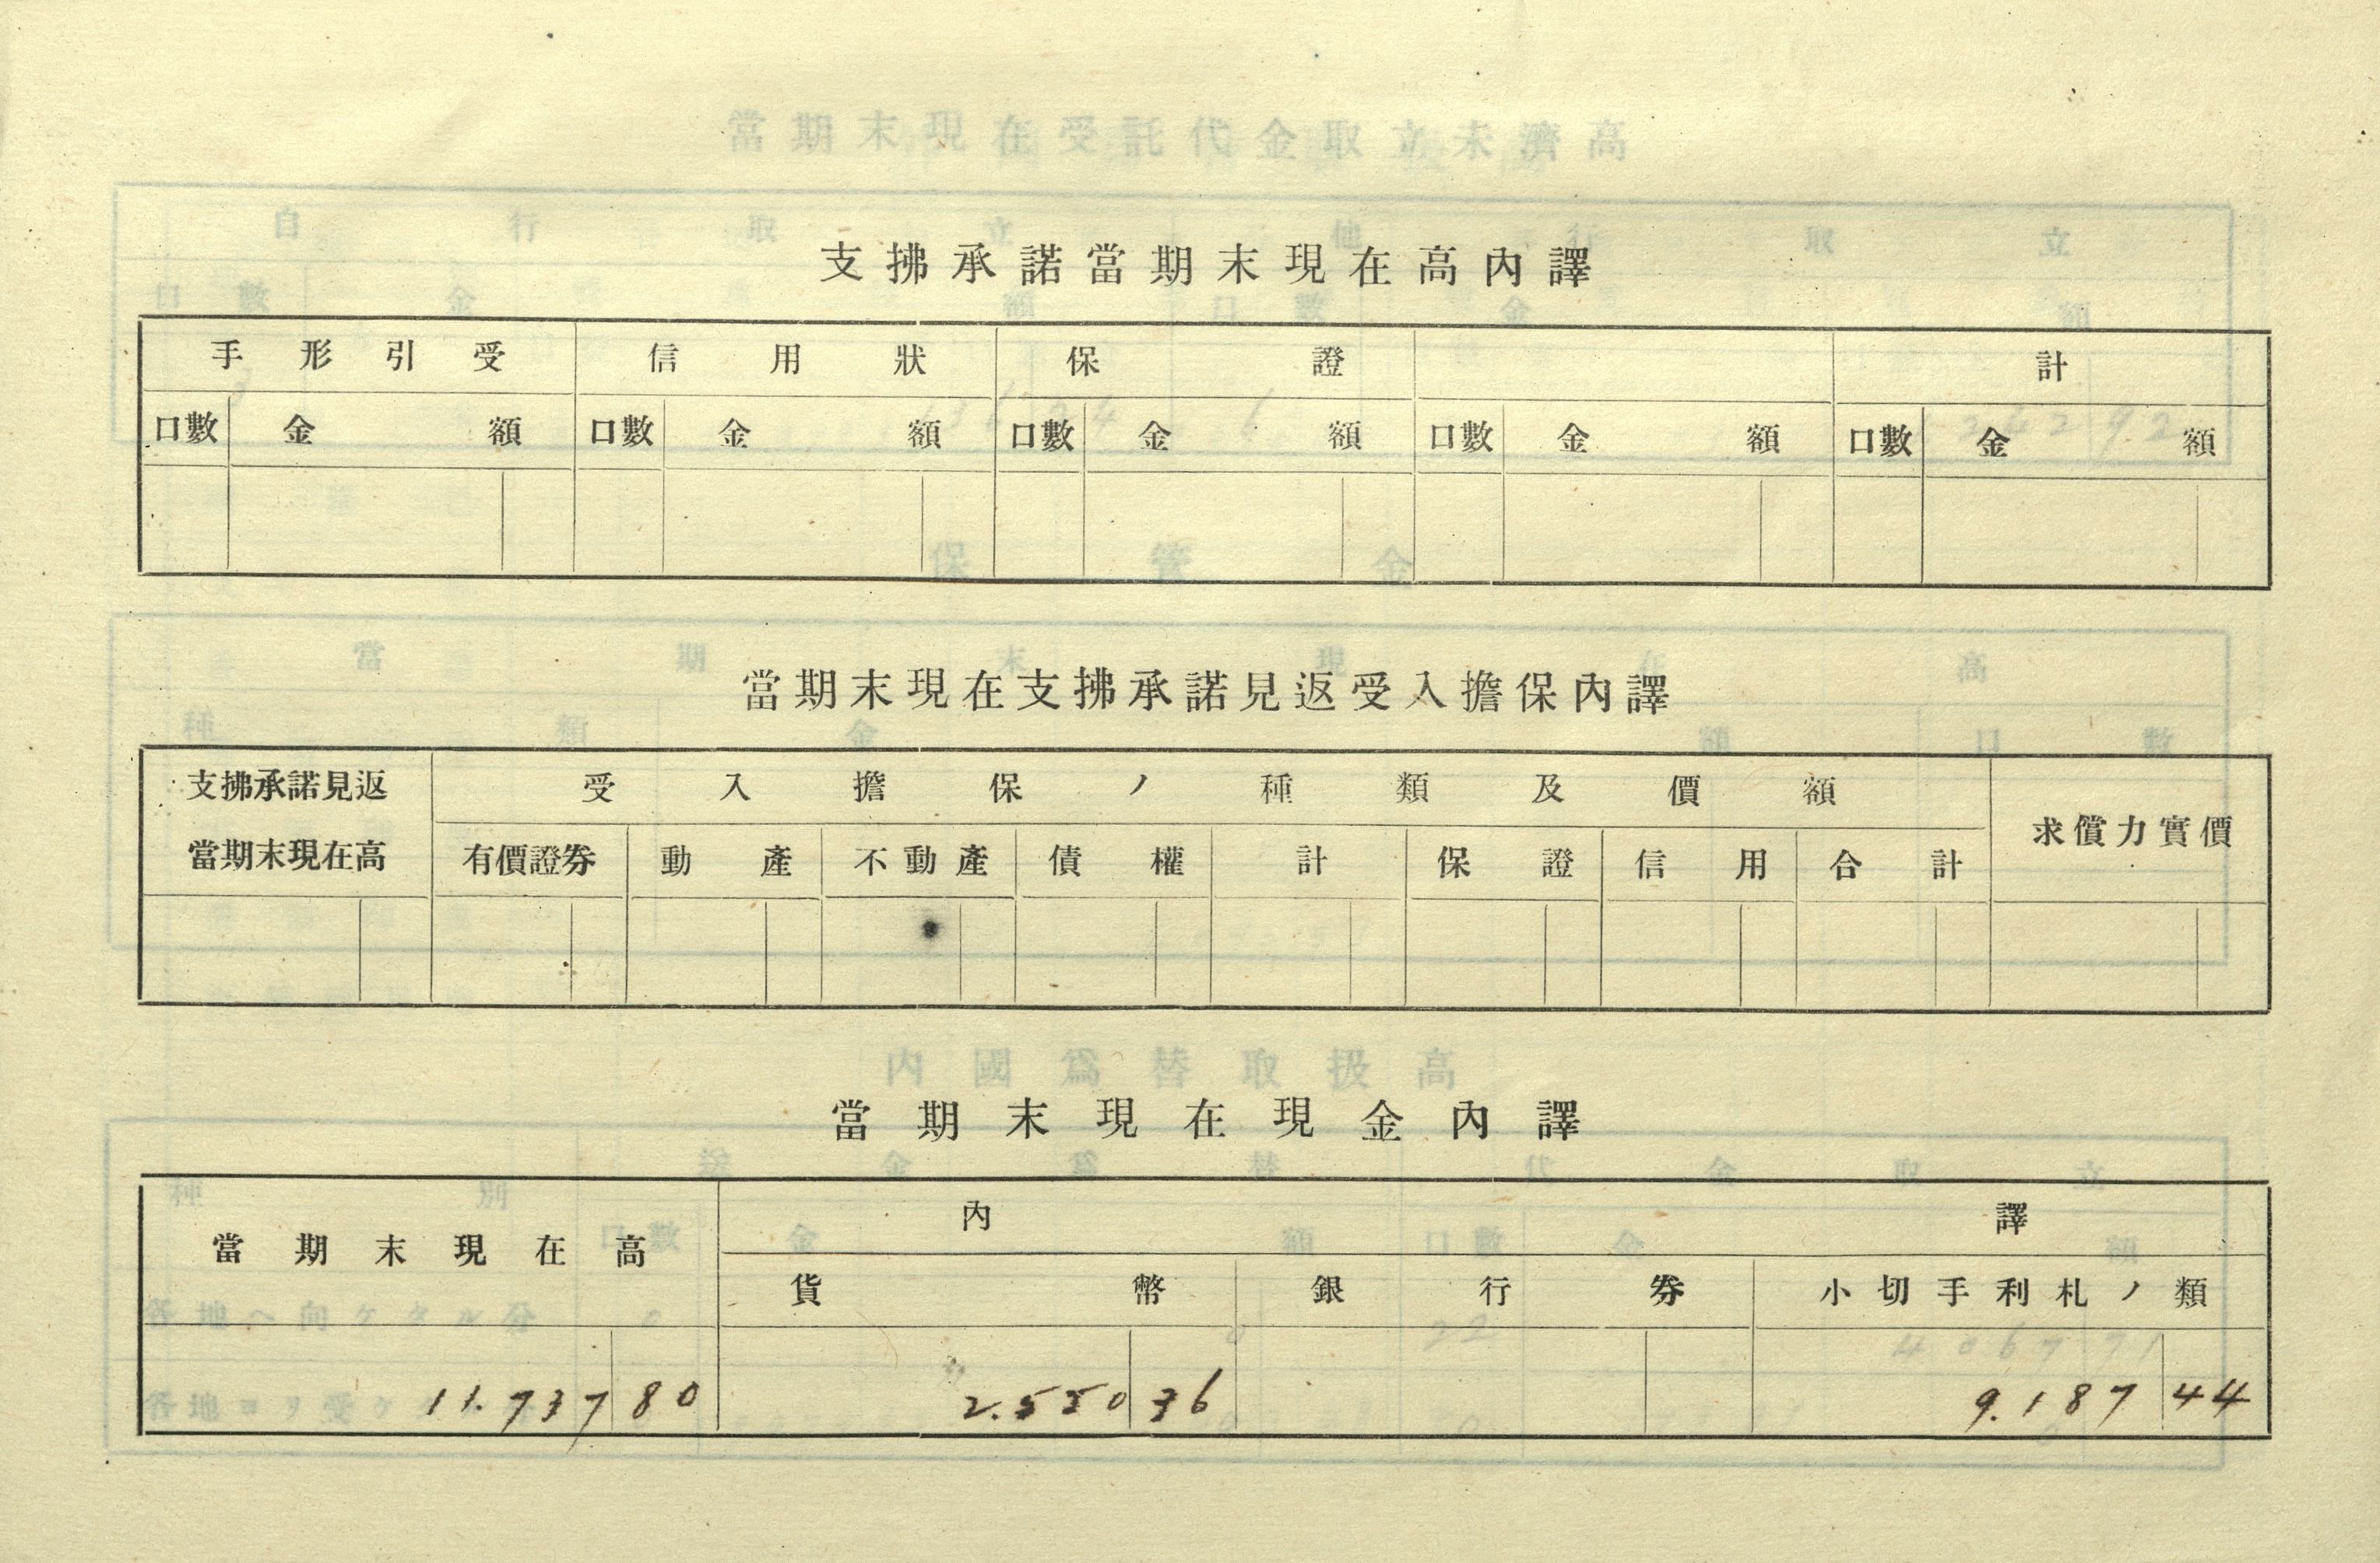 支拂承諾當期末現在高內譯
手形引受 信用狀 保證 計
口數 金額 口數 金額 口數 金額 口數 金額 口數 金額
當期末現在支拂承諾見返受入擔保內譯
支拂承諾見返 受入擔保ノ種類及價額 求償力實價
當期末現在高 有價證券 動產 不動產 債權 計 保證 信用 合計
當期末現在現金內譯
當期末現在高 內譯
貨幣 銀行券 小切手利札ノ類
11.737 80 2.550 36 9.187 44